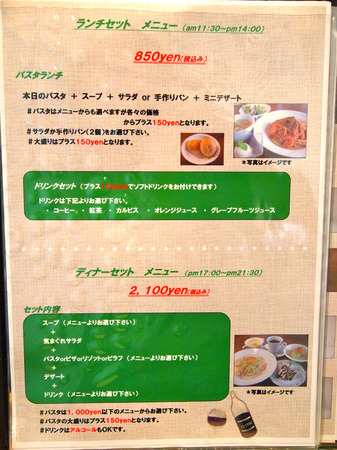 ランチセット メニュー (am11:30~pm14:00)
850yen(税込み)
パスタランチ
本日のパスタ + スープ + サラダ or 手作りパン + ミニデザート
#パスタはメニューからも選べますが各々の価格
からプラス150yenとなります。
#サラダか手作りパン(2個)をお選び下さい。
#大盛りはプラス150yenとなります。
*写真はイメージです
ドリンクセット (プラス150yenでソフトドリンクをお付けできます)
ドリンクは下記よりお選び下さい。
・コーヒー、・紅茶 ・カルピス ・オレンジジュース ・グレープフルーツジュース
ディナーセット メニュー (pm17:00~pm21:30)
2,100yen(税込み)
セット内容
スープ (メニューよりお選び下さい)
+
気まぐれサラダ
+
パスタorピザorリゾットorピラフ (メニューよりお選び下さい)
+
デザート
+
ドリンク (メニューよりお選び下さい)
*写真はイメージです
#パスタは1,000yen以下のメニューからお選び下さい。
#パスタの大盛りはプラス150yenとなります。
#ドリンクはアルコールもOKです。